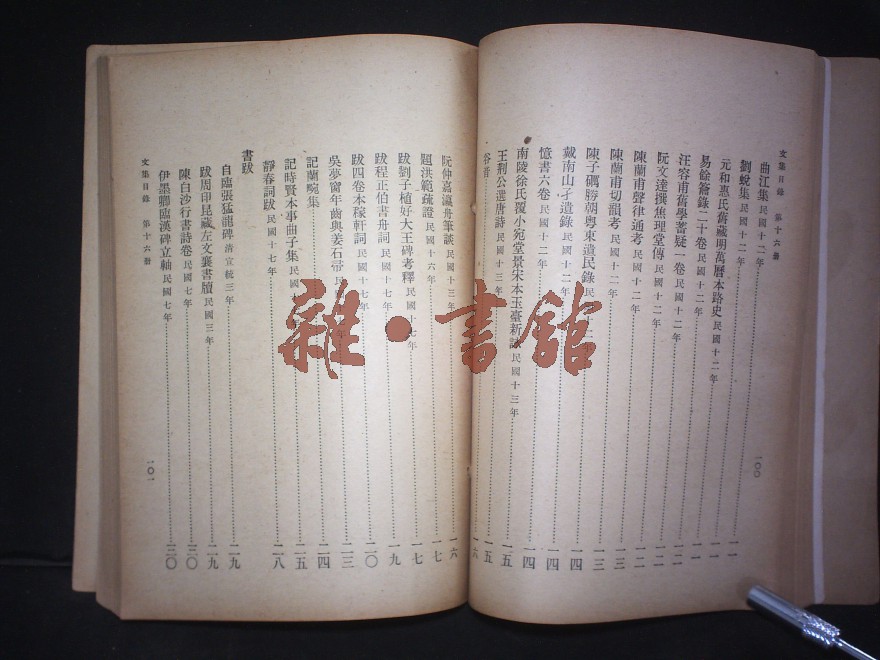 文集目錄 第十六册
曲江集民國十二年 一一
劉蛻集民國十二年 一一
元和惠氏舊藏明萬曆本路史民國十二年 一一
易餘籥錄二十卷民國十二年 一一
汪容甫舊學蓄疑一卷民國十二年 一二
阮文達撰焦理堂傳民國十二年 一二
陳蘭甫聲律通考民國十二年 一二
陳蘭甫切韻考民國十二年 一三
陳子礪勝朝粵東遺民錄民 一三
戴南山孑遺錄民國十二年 一四
憶書六卷民國十二年 一四
南陵徐氏覆小宛堂景宋本玉臺新詠民國十三年 一五
王荆公選唐詩民國十三年 一五
六
一〇〇
阮仲嘉瀛舟筆談民國十三年 一六
題洪範疏證民國十六年 一七
跋劉子植好大王碑考釋民國十七年 一七
跋程正伯書舟詞民國十七年 一九
跋四卷本稼軒詞民國十七年 二〇
吳夢窗年齒與姜石帚民 年 二三
記蘭畹集 二四
記時賢本事曲子集民國 二五
靜春詞跋民國十七年 二八
書跋
自臨張猛龍碑清宣統三年 二九
跋周印昆藏左文襄書牘民國三年 二九
陳白沙行書詩卷民國七年 三〇
伊墨卿臨漢碑立軸民國七年 三〇
文集目錄 第十六册
一〇一
雜·書館